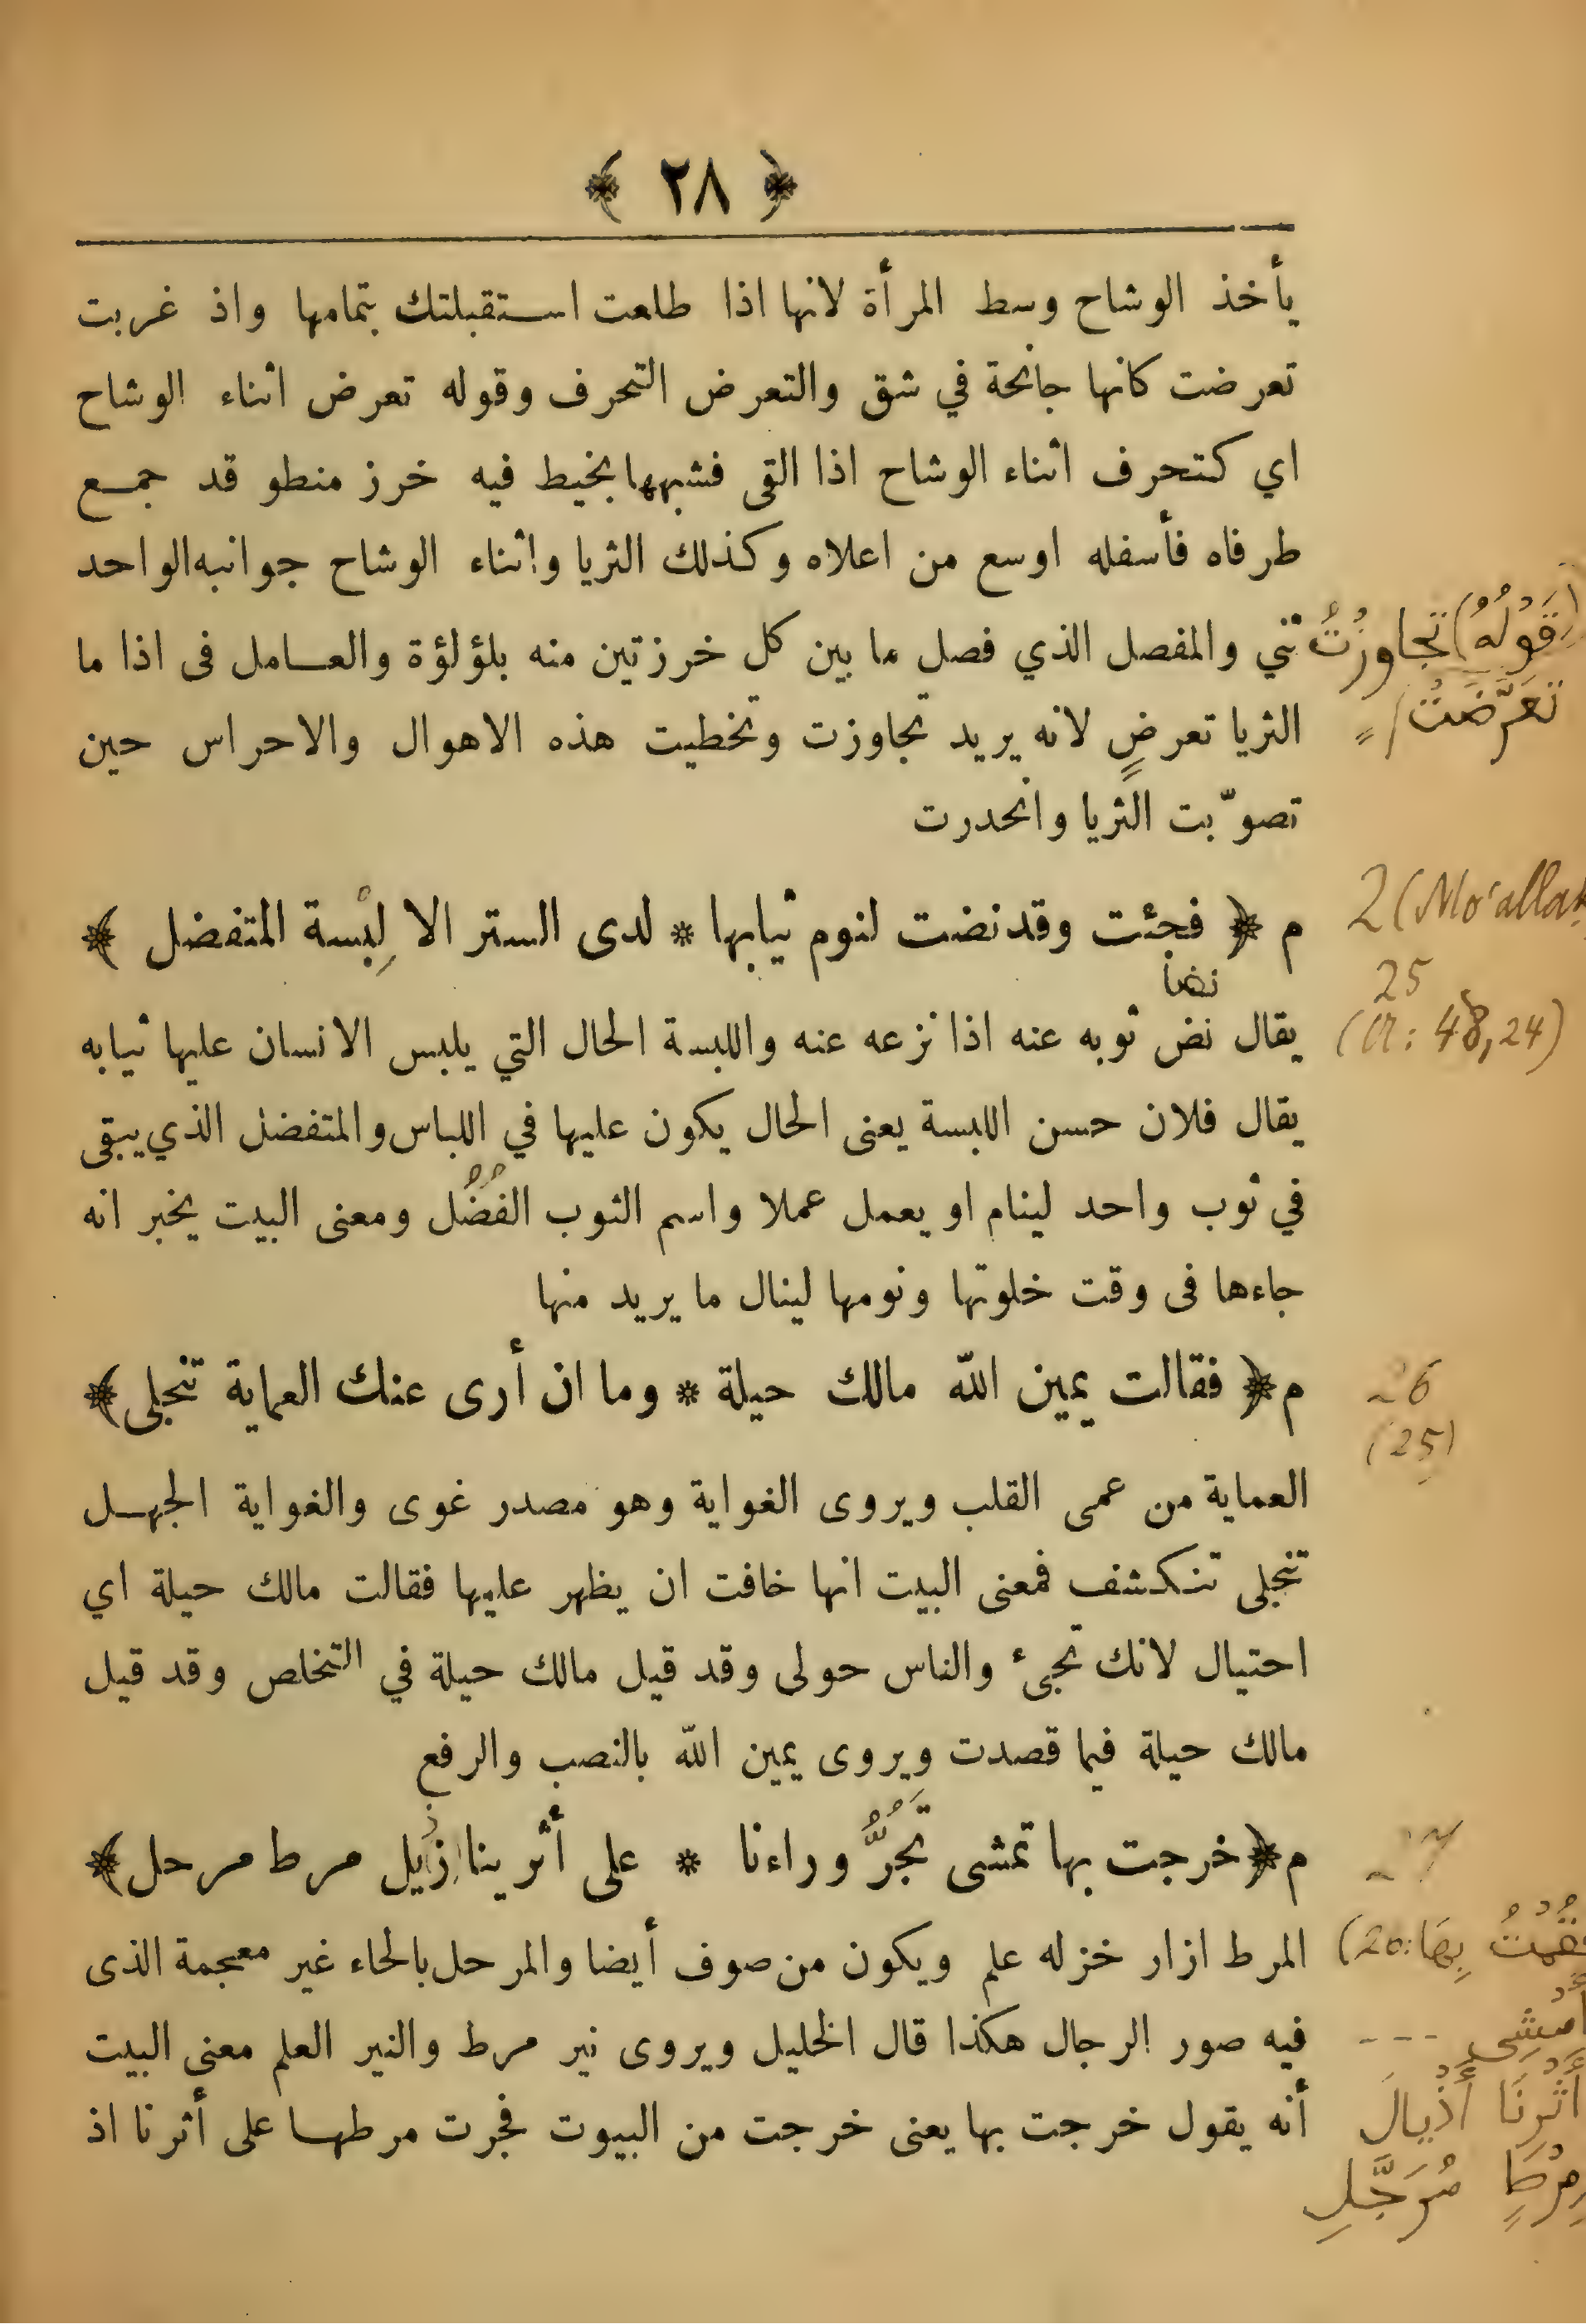 ﴿ ٢٨ ﴾
يأخذ الوشاح وسط المرأة لانها اذا طلعت استقبلتك بتمامها واذ غربت
تعرضت كانها جانحة في شق والتعرض التحرف وقوله تعرض اثناء الوشاح
اي كتحرف اثناء الوشاح اذا القى فشبهها بخيط فيه خرز منطو قد جمع
طرفاه فأسفله اوسع من اعلاه وكذلك الثريا واثناء الوشاح جوانبه الواحد
ثني والمفصل الذي فصل ما بين كل خرزتين منه بلؤلؤة والعامل فى اذا ما
(قَوْلُهُ) تجاوزْتُ
الثريا تعرضٍ لانه يريد تجاوزت وتخطيت هذه الاهوال والاحراس حين
تَعَرَّضَتْ /
تصوّبت الثريا وانحدرت
م ﴿ فجئت وقد نضت لنوم ثيابها * لدى الستر الا لِبْسة المتفضل ﴾
2 (Mo'allaḳ
25
نضا
يقال نض ثوبه عنه اذا نزعه عنه واللبسة الحال التي يلبس الانسان عليها ثيابه
(A: 48,24)
يقال فلان حسن اللبسة يعنى الحال يكون عليها في اللباس والمتفضل الذي يبقى
في ثوب واحد لينام او يعمل عملا واسم الثوب الفُضُل ومعنى البيت يخبر انه
جاءها فى وقت خلوتها ونومها لينال ما يريد منها
م ﴿ فقالت يمين الله مالك حيلة * وما ان أرى عنك العماية تنجلى ﴾
26
(25)
العماية من عمى القلب ويروى الغواية وهو مصدر غوى والغواية الجهل
تنجلى تنكشف فمعنى البيت انها خافت ان يظهر عليها فقالت مالك حيلة اي
احتيال لانك تجىء والناس حولى وقد قيل مالك حيلة في التخلص وقد قيل
مالك حيلة فيما قصدت ويروى يمين الله بالنصب والرفع
م ﴿ خرجت بها تمشى تَجُرُّ وراءنا * على أثرينا ذَيل مرط مرحل ﴾
27
المرط ازار خزله علم ويكون من صوف أيضا والمرحل بالحاء غير معجمة الذى
فَقُمْتُ بِهَا (26:
فيه صور الرجال هكذا قال الخليل ويروى نير مرط والنير العلم معنى البيت
أَمْشِي ---
أنه يقول خرجت بها يعنى خرجت من البيوت فجرت مرطها على أثرنا اذ
أَثْرِنَا أَذْيالَ
مِرْطٍ مُرَجَّلِ